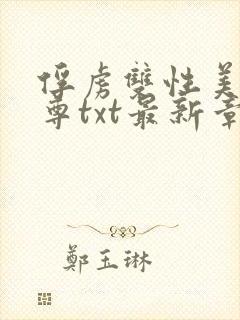 俘虏雙性美
尊txt最新章
鄭玉琳